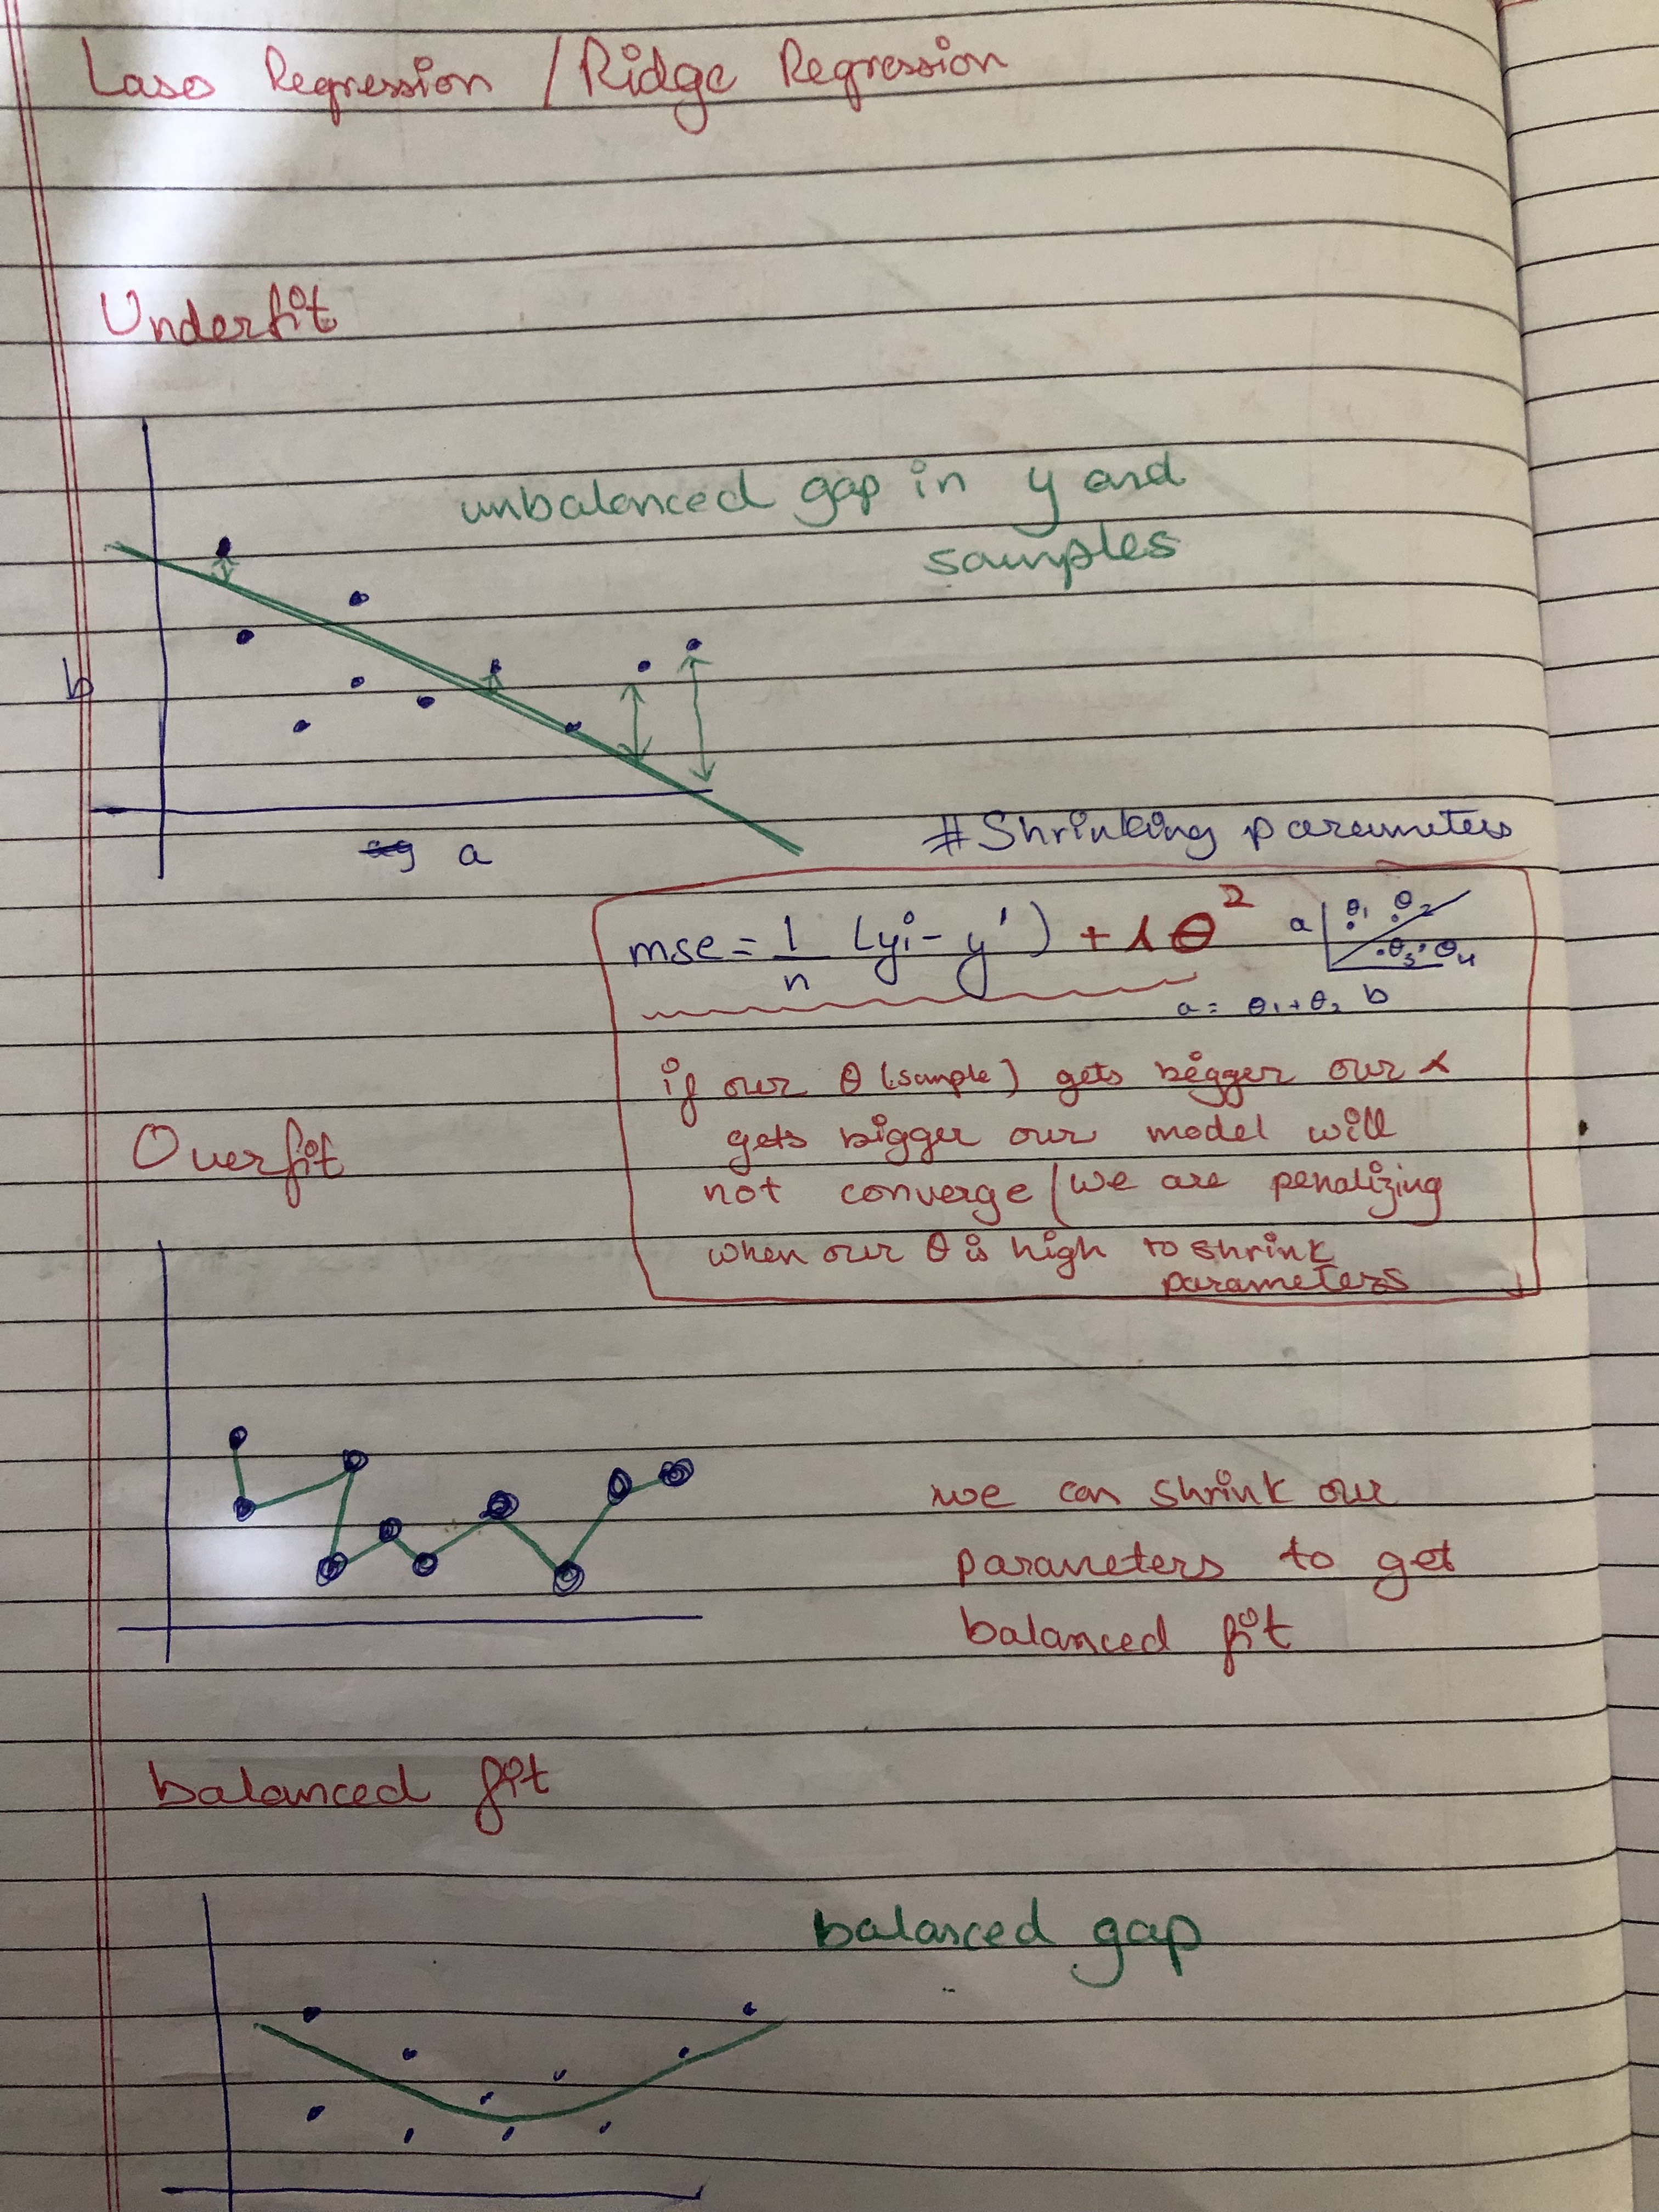 Laso Regression / Ridge Regression
Underfit
unbalanced gap in y and
samples
b
a
#Shrinking parameters
mse = 1/n (yi - y') + λθ²
a
θ₁ θ₂
θ₃ θ₄
b
a = θ₁ + θ₂
if our θ (sample) gets bigger our λ
gets bigger our model will
not converge (we are penalizing
when our θ is high to shrink
parameters
Overfit
we can shrink our
parameters to get
balanced fit
balanced fit
balanced gap